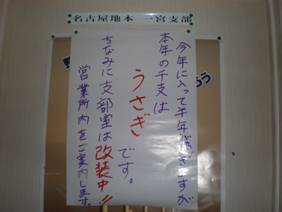 名古屋地本 一宮支部
今年に入って半年が過ぎますが
本年の干支は
うさぎ
です。
ちなみに支部室は改装中!!
営業所内をご案内します。